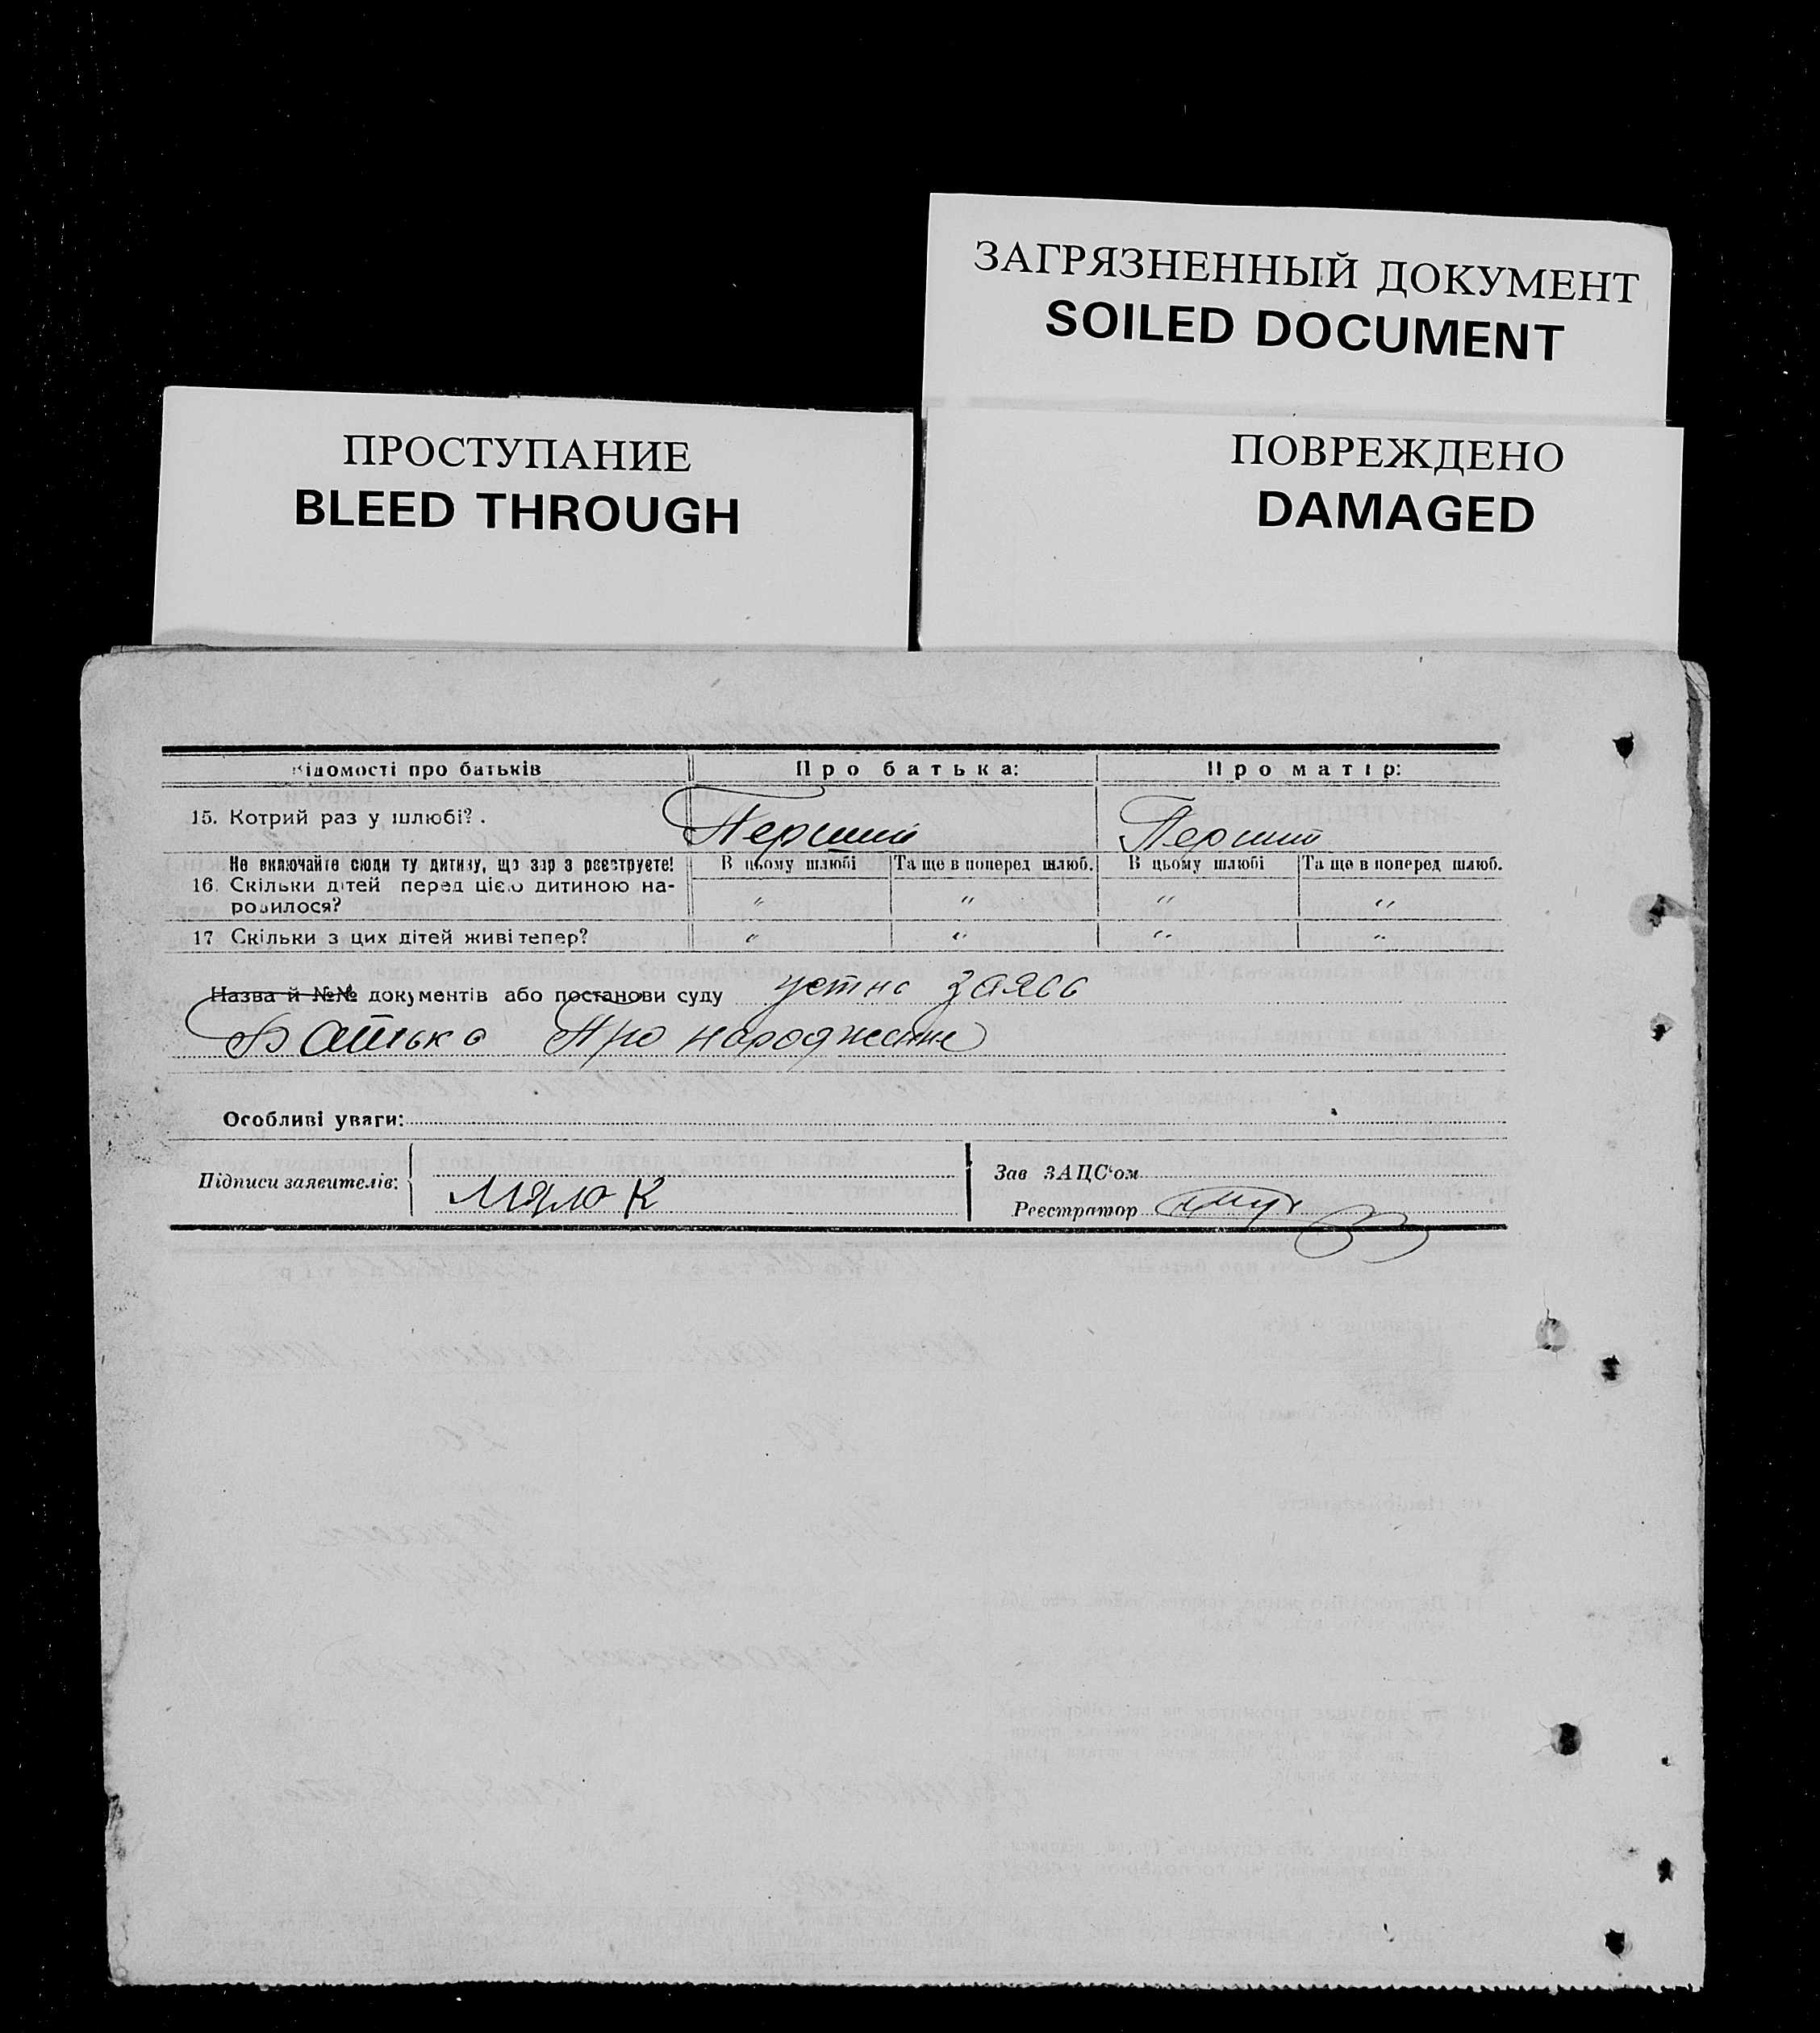 ЗАГРЯЗНЕННЫЙ ДОКУМЕНТ
SOILED DOCUMENT
ПРОСТУПАНИЕ
BLEED THROUGH
ПОВРЕЖДЕНО
DAMAGED
Відомості про батьків Про батька: Про матір:
15. Котрий раз у шлюбі? . Перший Перший
Не включайте сюди ту дитину, що зараз реєструєте! В цьому шлюбі Та ще в поперед шлюб. В цьому шлюбі Та ще в поперед шлюб.
16. Скільки дітей перед цією дитиною на-
родилося? " " " "
17 Скільки з цих дітей живі тепер? " " " "
Назва й №№ документів або постанови суду устна заява
Батька Про народження
Особливі уваги:
Підписи заявителів: Мяло К
Зав ЗАЦС'ом
Реєстратор